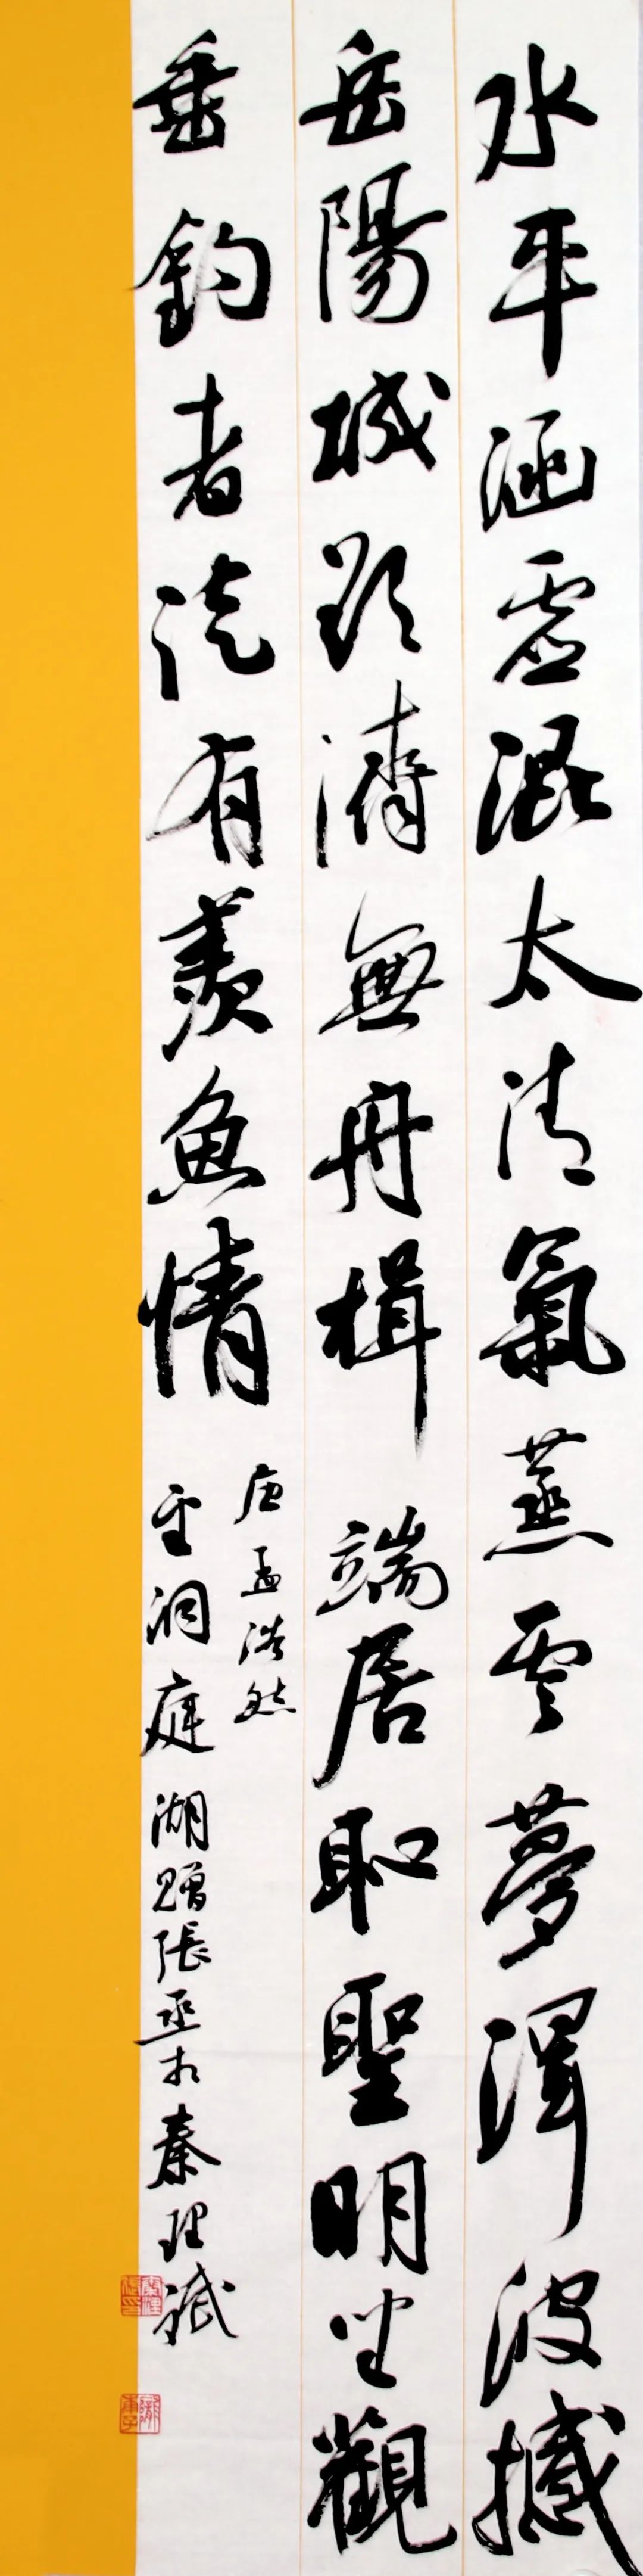 水平涵虛混太清氣蒸雲夢澤波撼
岳陽城欲濟無舟楫端居恥聖明坐觀
垂釣者徒有羨魚情
唐孟浩然
望洞庭湖贈張丞相秦理斌